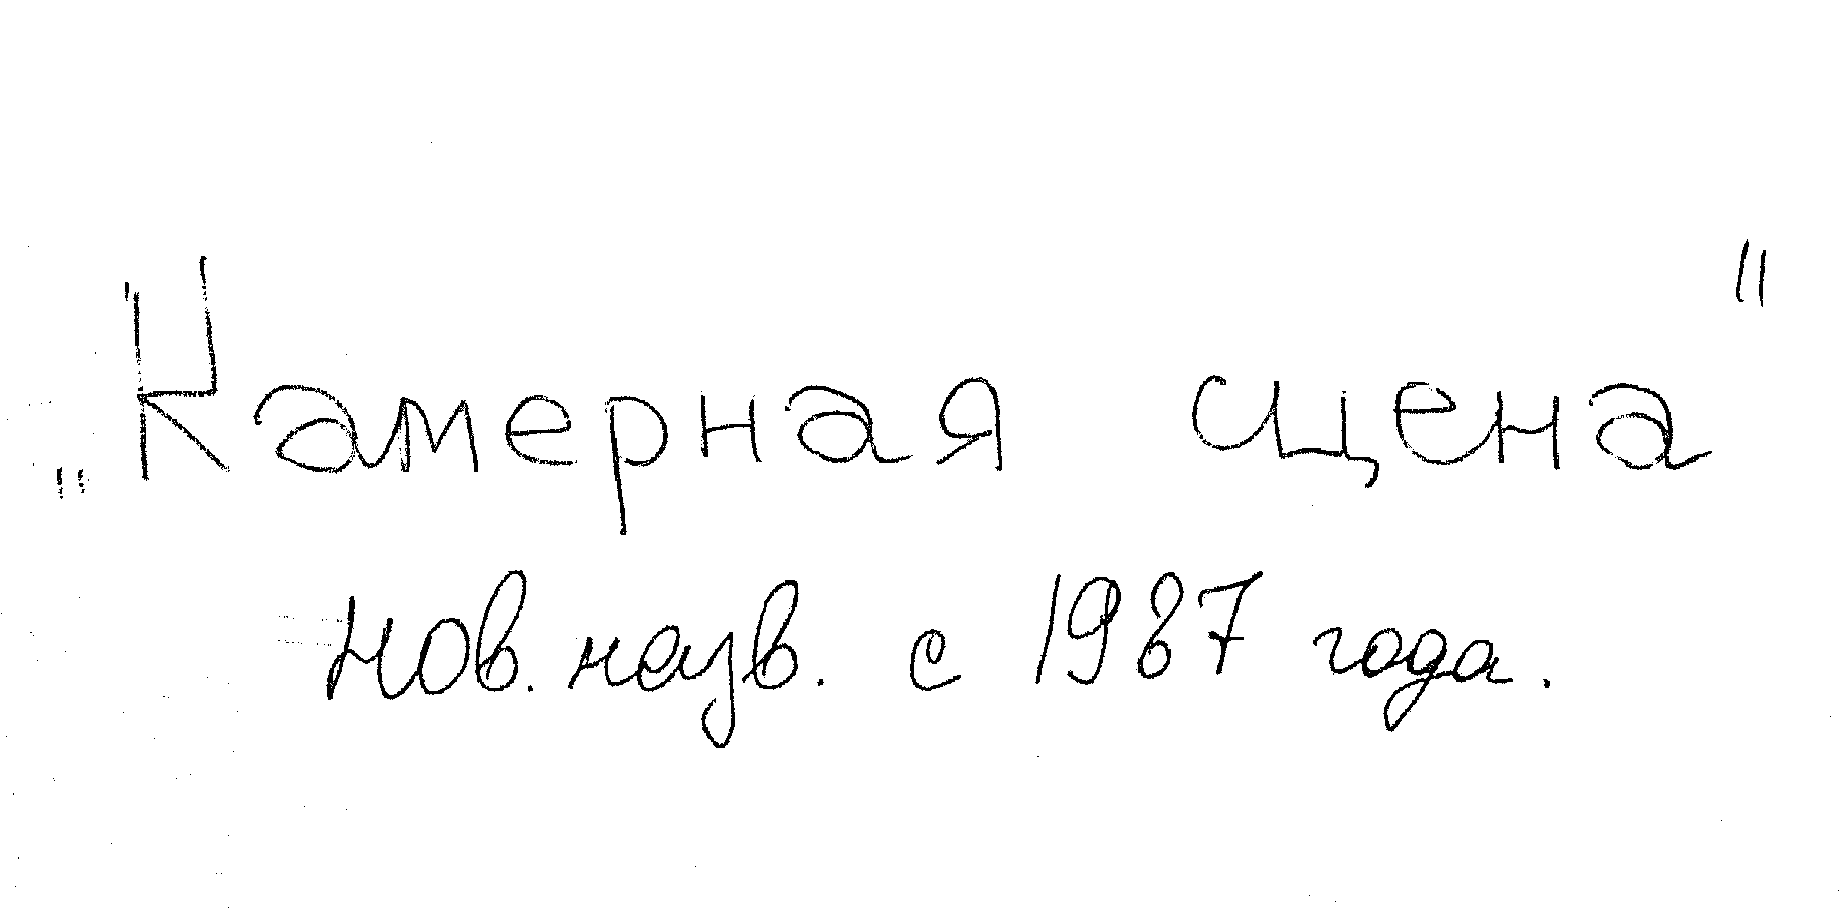 „Камерная сцена"
Нов. назв. с 1987 года.